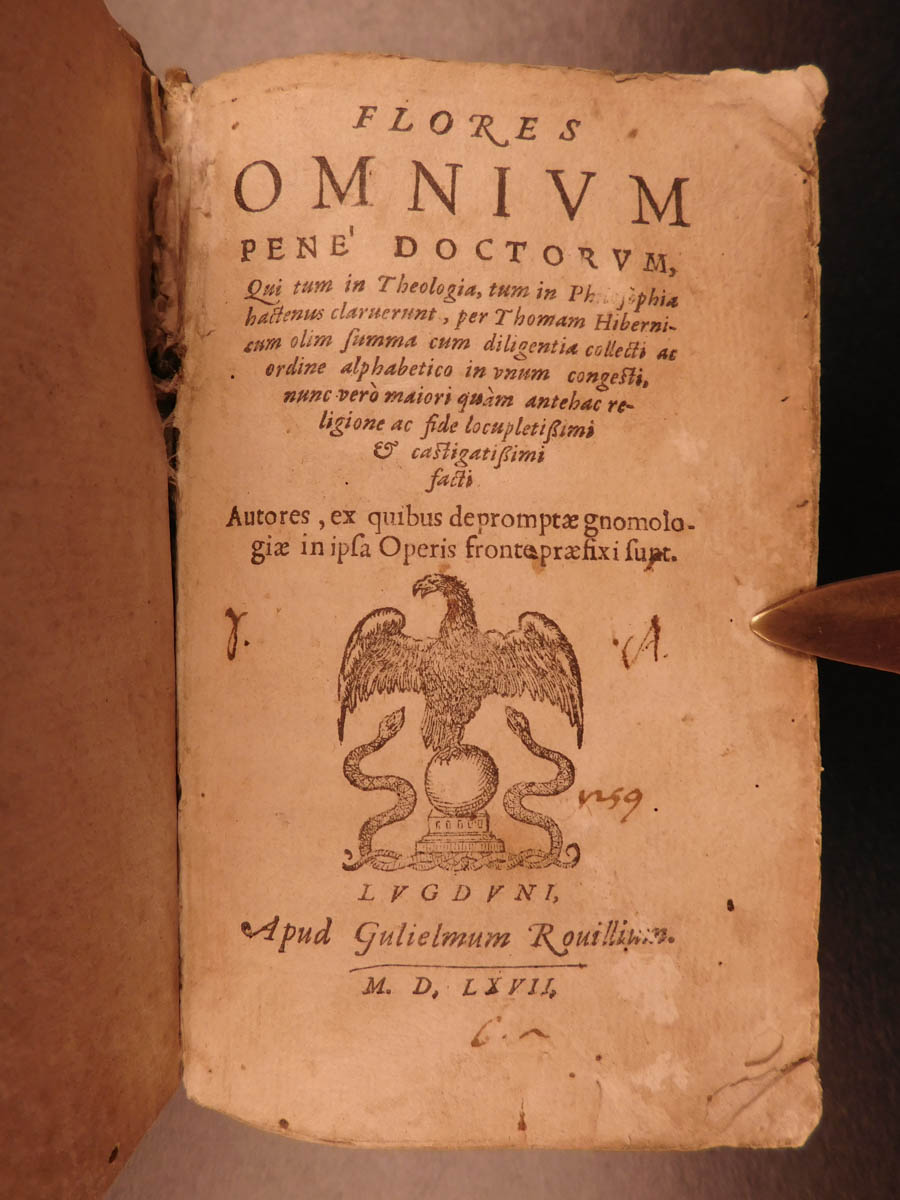 FLORES
OMNIVM
PENE' DOCTORVM,
Qui tum in Theologia, tum in Philosophia
hactenus claruerunt, per Thomam Hiberni-
cum olim ſumma cum diligentia collecti ac
ordine alphabetico in vnum congeſti,
nunc verò maiori quàm antehac re-
ligione ac fide locupletißimi
& caſtigatißimi
facti
Autores, ex quibus depromptæ gnomolo-
giæ in ipſa Operis fronte præfixi ſunt.
LVGDVNI,
Apud Gulielmum Rouillium.
M. D. LXVII,